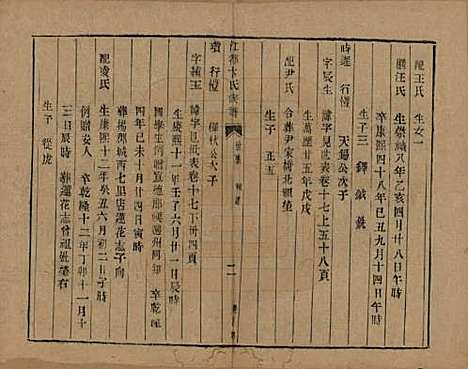 配王氏 生女一
繼汪氏 生崇禎八年乙亥四月廿八日午時
卒康熙四十八年己丑九月十四日午時
生子三 鐸 鉞 銑
時運 行 天錫公次子
字辰生 諱字見世表卷十七上五十八頁
生萬歷廿五年戊戌
配尹氏 合葬尹家橋北祖塋
生子 正五
江都卞氏族譜
二
行 公次子
字 玉 諱字見世表卷十七下廿四頁
生康熙十一年壬子六月廿一日辰時
國學生例贈宣德郎 州同知 卒乾隆
四年己未十月廿四日寅時
葬揚郡城西七里店蓮花志子向
配凌氏 生康熙十二年癸丑六月初二日子時
例贈安人 卒乾隆十二年丁卯十一月十
三日辰時 葬蓮花志曾祖塋右
生子 從虎